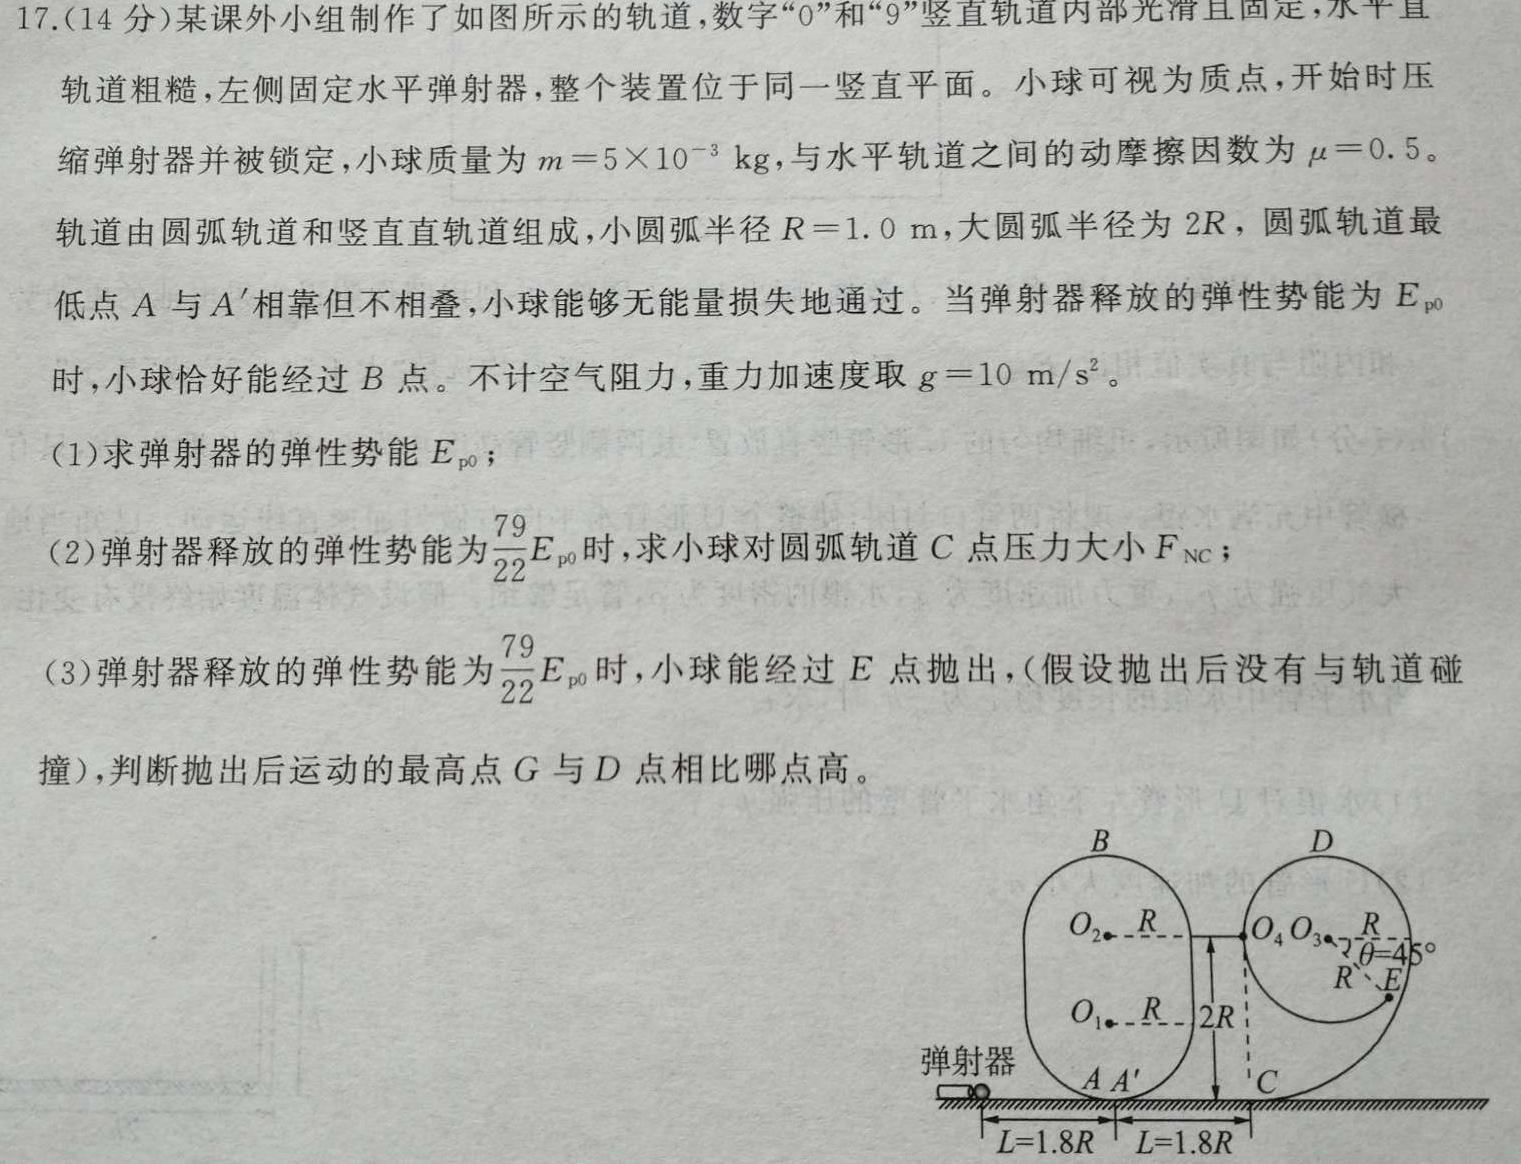 17.(14 分)某课外小组制作了如图所示的轨道,数字“0”和“9”竖直轨道内部光滑且固定,水平直
轨道粗糙,左侧固定水平弹射器,整个装置位于同一竖直平面。小球可视为质点,开始时压
缩弹射器并被锁定,小球质量为 m=5×10⁻³ kg,与水平轨道之间的动摩擦因数为 μ=0.5。
轨道由圆弧轨道和竖直直轨道组成,小圆弧半径 R=1.0 m,大圆弧半径为 2R, 圆弧轨道最
低点 A 与 A′相靠但不相叠,小球能够无能量损失地通过。当弹射器释放的弹性势能为 Eₚ₀
时,小球恰好能经过 B 点。不计空气阻力,重力加速度取 g=10 m/s²。
(1)求弹射器的弹性势能 Eₚ₀;
(2)弹射器释放的弹性势能为79/22Eₚ₀时,求小球对圆弧轨道 C 点压力大小 F_NC;
(3)弹射器释放的弹性势能为79/22Eₚ₀时,小球能经过 E 点抛出,(假设抛出后没有与轨道碰
撞),判断抛出后运动的最高点 G 与 D 点相比哪点高。
B D
O₂ R O₄ O₃ R
θ=45°
R E
O₁ R 2R
弹射器 A A′ C
L=1.8R L=1.8R